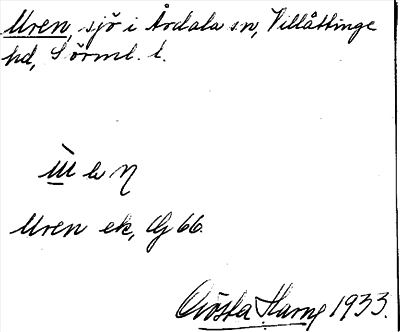 Uren, sjö i Årdala sn, Villåttinge
hd, Sörml. l.
Uren ek, Gj 66.
Gösta Harng 1933.